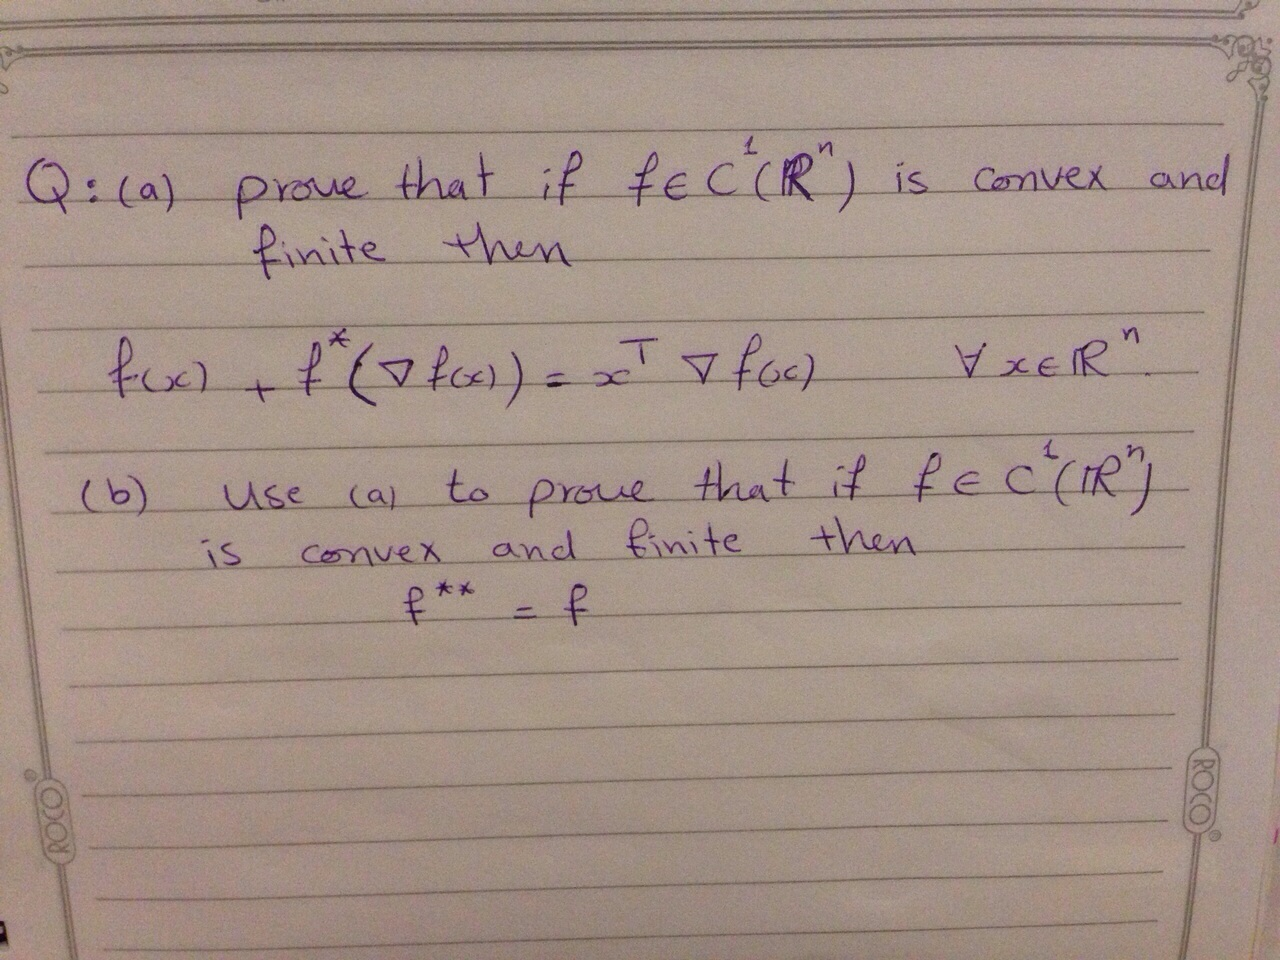 Q: (a) prove that if f ∈ C¹(ℝⁿ) is convex and
finite then
f(x) + f*(∇f(x)) = xᵀ ∇f(x) ∀ x ∈ ℝⁿ.
(b) use (a) to prove that if f ∈ C¹(ℝⁿ)
is convex and finite then
f** = f
ROCO
ROCO